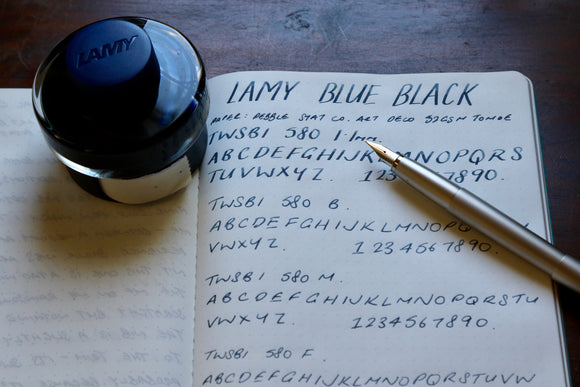 LAMY
LAMY BLUE BLACK
PAPER: PEBBLE STAT CO. ART DECO 52GSM TOMOE
TWSBI 580 1.1mm.
ABCDEFGHIJKLMNOPQRS
TUVWXYZ. 1234567890.
TWSBI 580 B.
ABCDEFGHIJKLMNOP
VWXYZ. 1234567890.
TWSBI 580 M.
ABCDEFGHIJKLMNOPQRSTU
VWXYZ. 1234567890.
TWSBI 580 F.
ABCDEFGHIJKLMNOPQRSTUVW